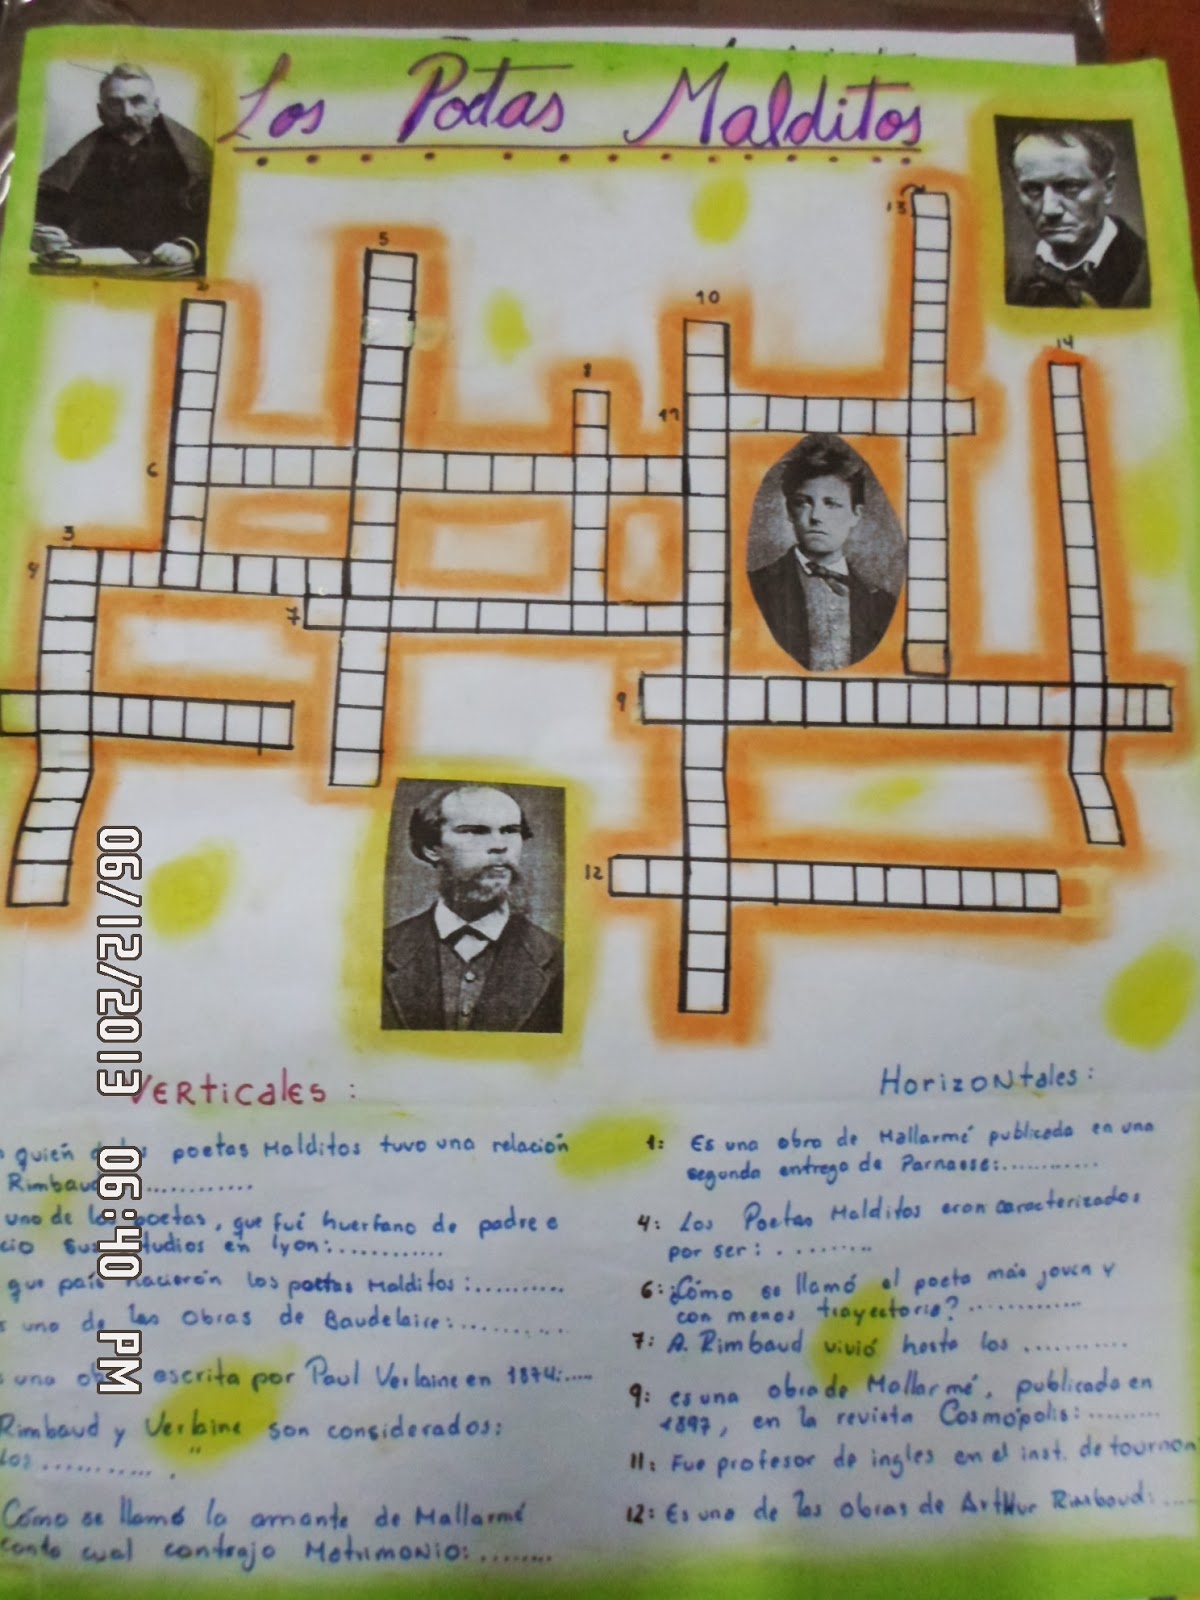 Los Poetas Malditos
13
5
2
10
14
8
11
6
3
4
7
9
12
VERTICALES :
quién poetas Malditos tuvo una relación
Rimbaud ............
uno de los poetas, que fué huerfano de padre e
cio sus studios en lyon:...........
que país nacierón los poetas Malditos :...........
una de las Obras de Baudelaire:...........
una escrita por Paul Verlaine en 1874:.....
Rimbaud y Verlaine son considerados:
los ........... .
Cómo se llamó la amante de Mallarmé
cual contrajo Matrimonio:........
Horizontales :
1: Es una obra de Mallarmé publicada en una
segunda entrega de Parnasse:............
4: Los Poetas Malditos eran caracterizados
por ser : . ........
6: ¿Cómo se llamó el poeta más joven y
con menos trayectoria? .............
7: A. Rimbaud vivió hasta los ...........
9: es una obra de Mallarmé, publicada en
1897, en la revista Cosmópolis:.........
11: Fue profesor de ingles en el inst. de tournon
12: Es una de las obras de Arthur Rimbaud: ....
06/12/2013 06:40 PM